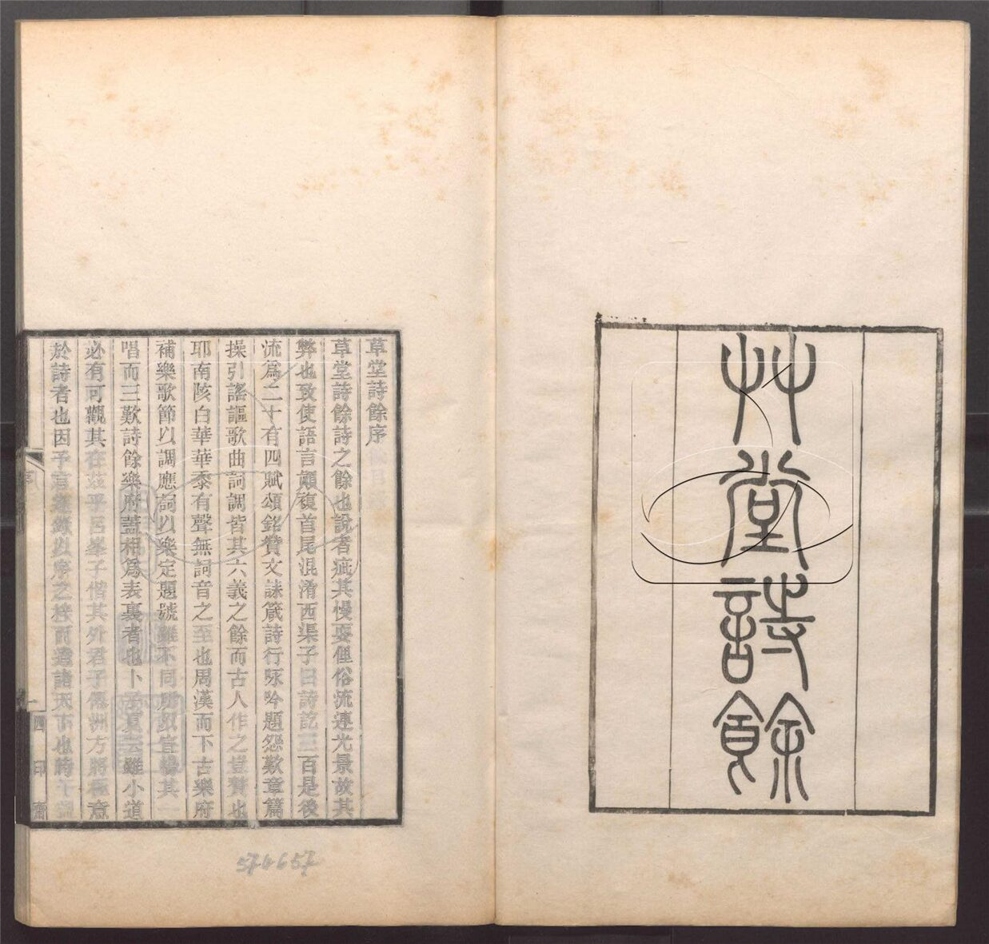 艸堂詩餘
草堂詩餘序
草堂詩餘詩之餘也說者疵其慢耍俚俗流連光景故其
弊也致使語言顛複首尾混淆西渠子曰詩訖三百是後
流爲二十有四賦頌銘贊文誄箴詩行咏吟題怨歎章篇
操引謠謳歌曲詞調皆其六義之餘而古人作之豈贅也
耶南陔白華華黍有聲無詞音之至也周漢而下古樂府
補樂歌節以調應詞以樂定題號雖不同所以宣其
唱而三歎詩餘樂府蓋相爲表裏者也卜子夏云雖小道
必有可觀其在茲乎子偕其外君子洲方將極意
於詩者也因予言遂以序之梓而遺諸天下也時
序
一
四印齋